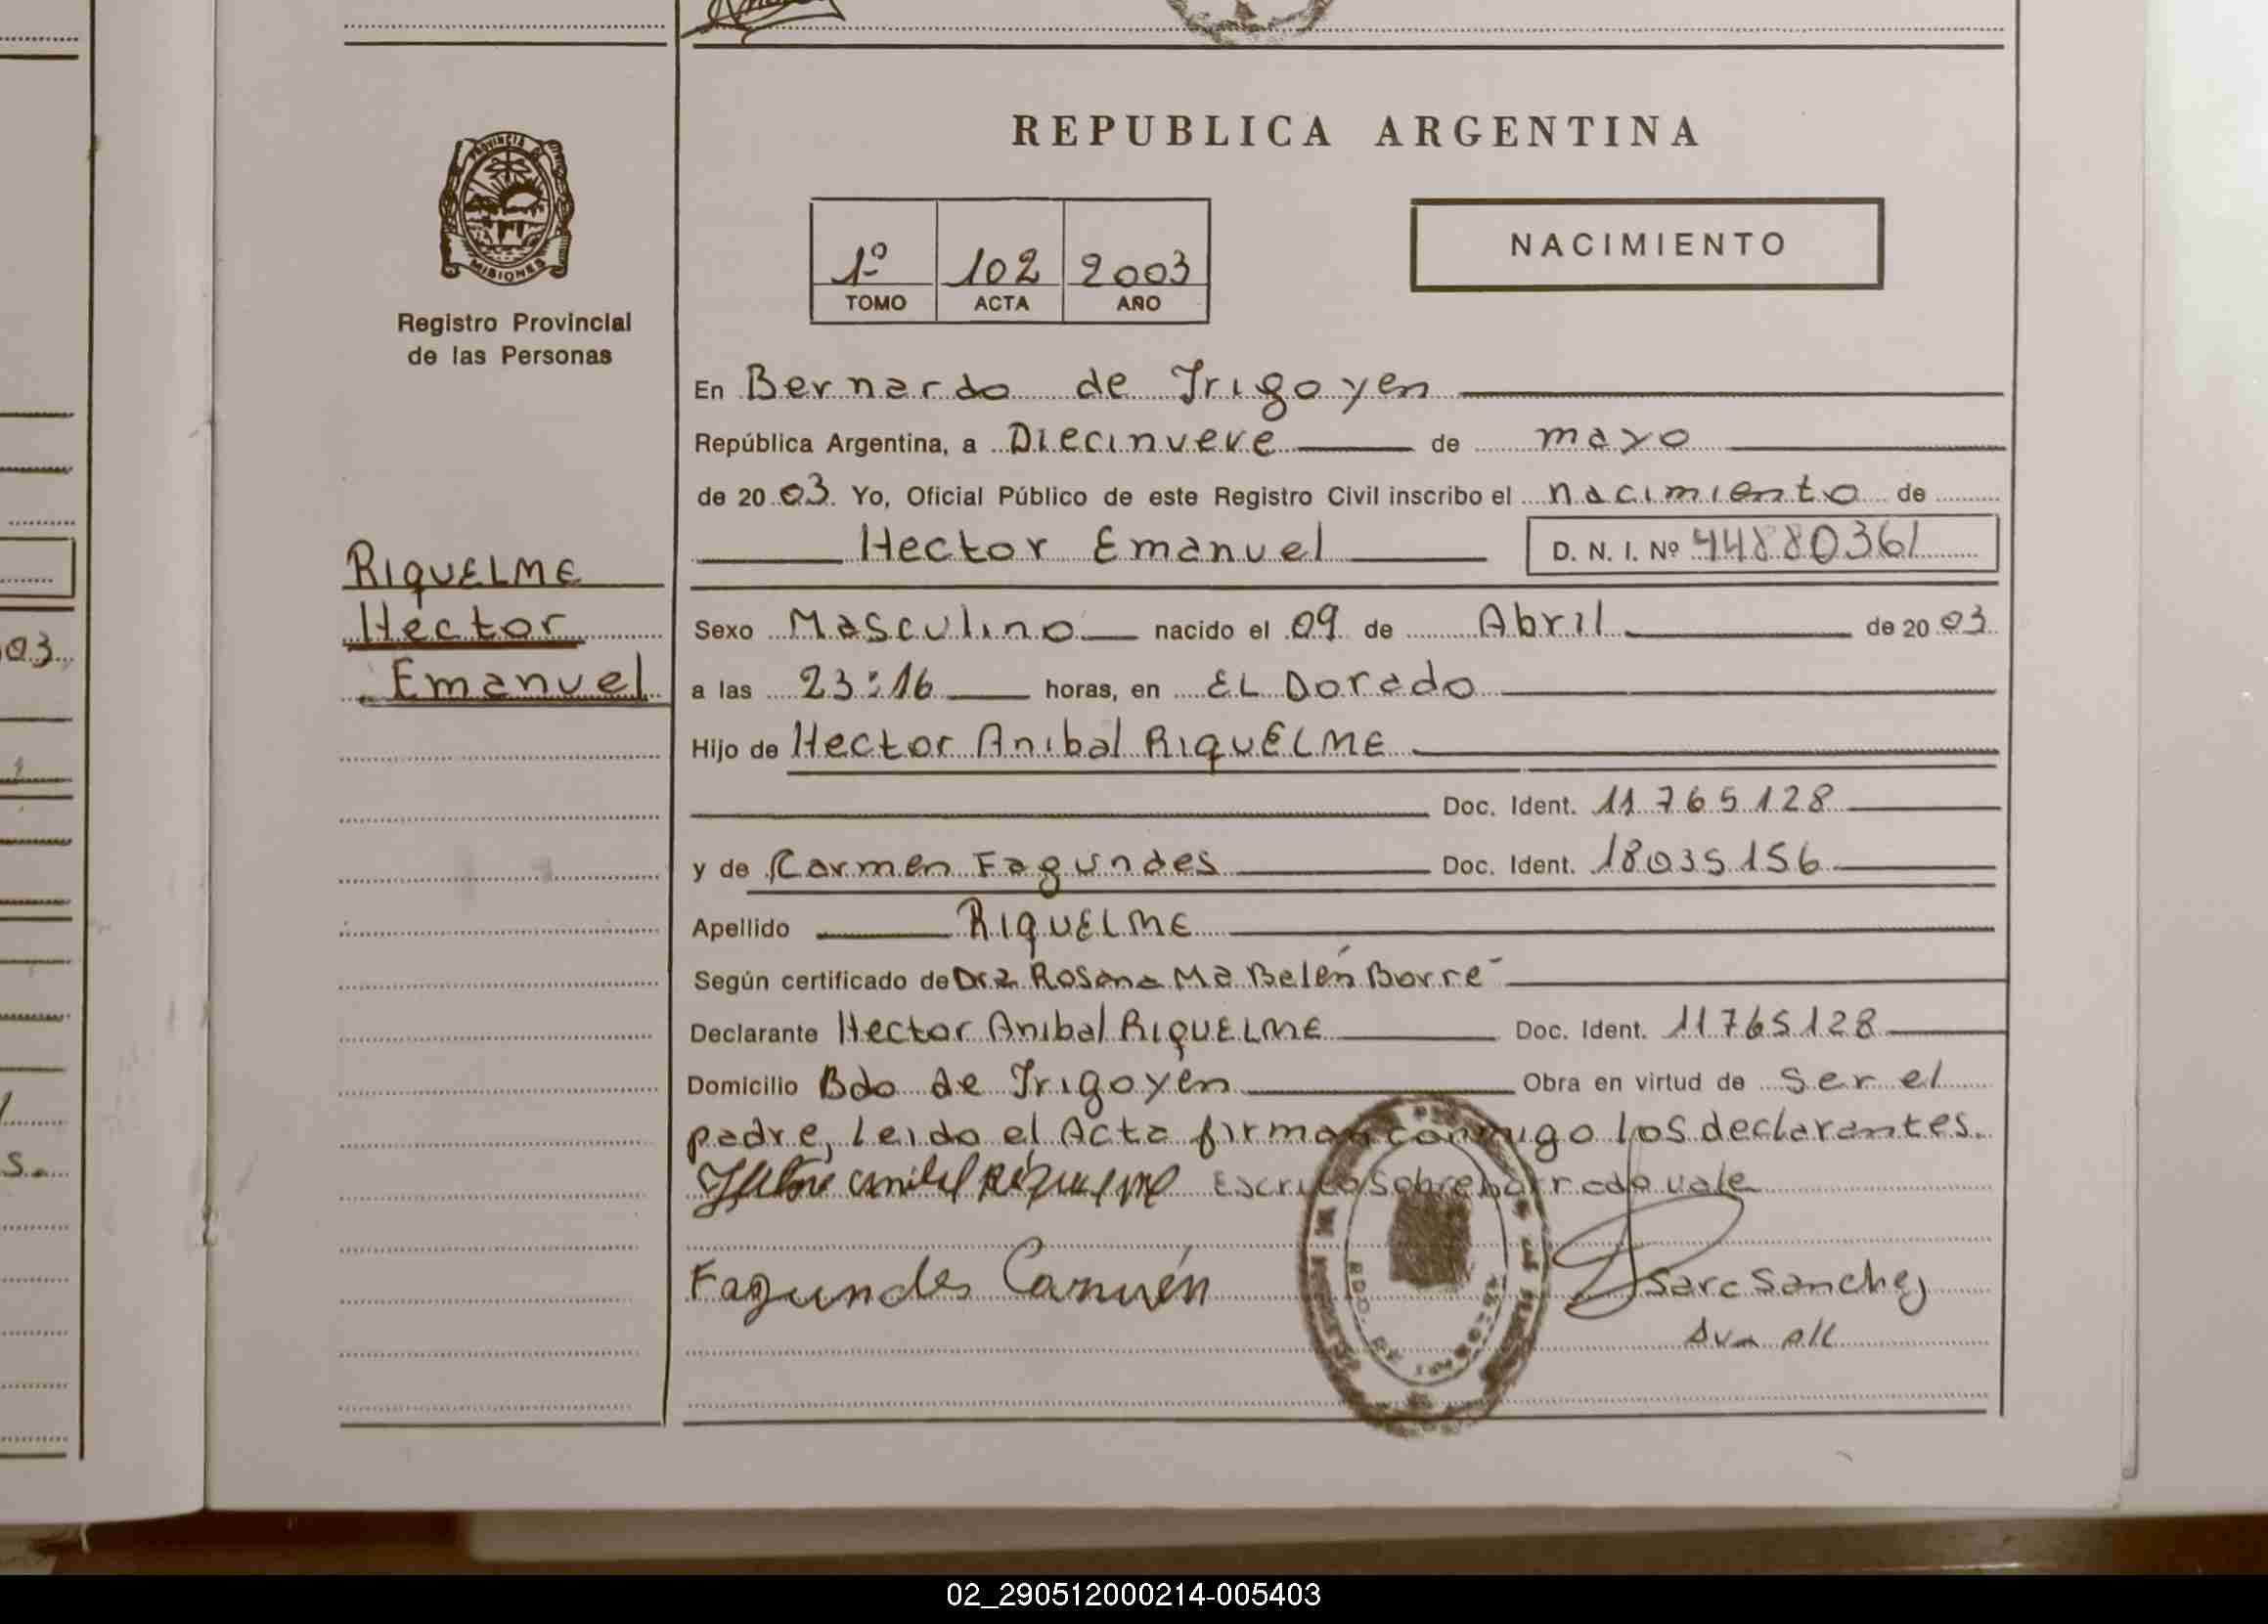 REPUBLICA ARGENTINA
PROVINCIA DE
MISIONES
Registro Provincial
de las Personas
1º 102 2003
TOMO ACTA AÑO
NACIMIENTO
En Bernardo de Irigoyen
República Argentina, a Diecinueve de mayo
de 2003. Yo, Oficial Público de este Registro Civil inscribo el nacimiento de
Hector Emanuel D. N. I. Nº 44880361
RIQUELME
Hector
Emanuel
Sexo Masculino nacido el 09 de Abril de 2003
a las 23:16 horas, en EL Dorado
Hijo de Hector Anibal RIQUELME
Doc. Ident. 11765128
y de Carmen Fagundes Doc. Ident. 18035156
Apellido RIQUELME
Según certificado de Dra Rosana Ma Belén Borré
Declarante Hector Anibal RIQUELME Doc. Ident. 11765128
Domicilio Bdo de Irigoyen Obra en virtud de ser el
padre, leido el Acta firman conmigo los declarantes.
Escrito sobreborrado vale
Fagundes Carmén
Sara Sanchez
03
02_290512000214-005403